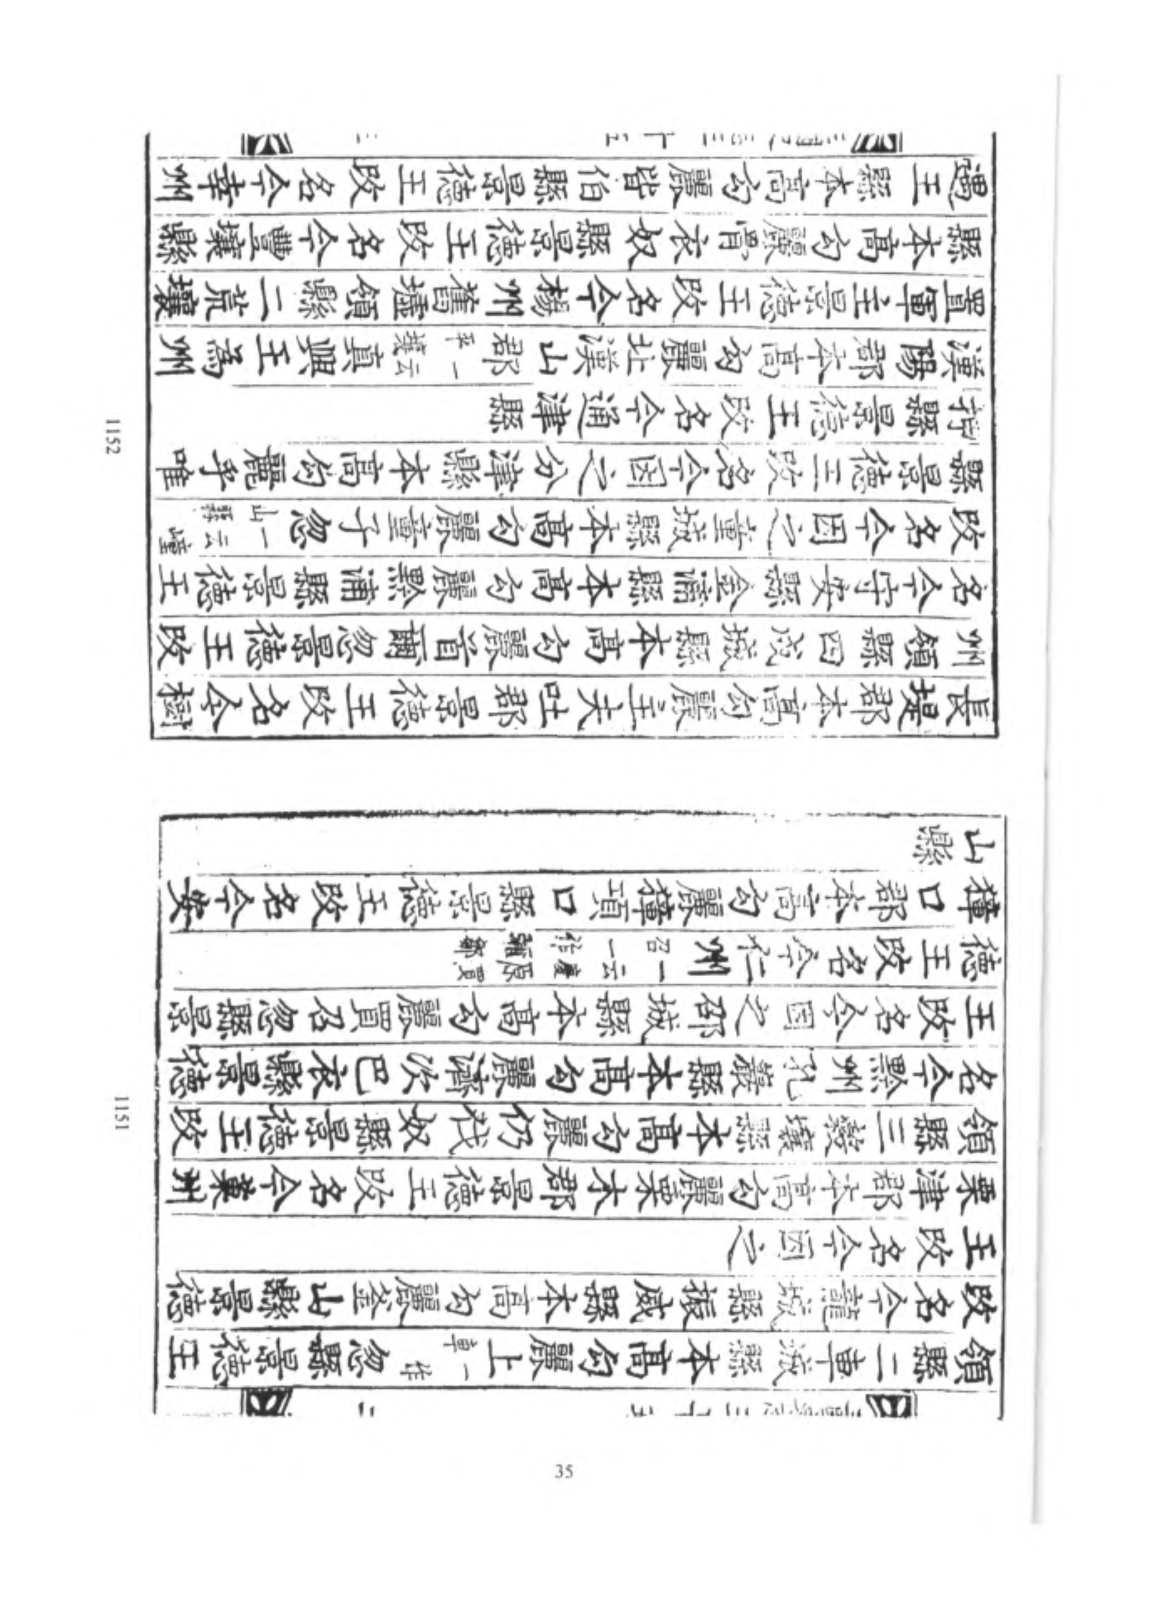 領縣二車城縣本高勾麗上一作車忽縣景德王
改名今龍城縣振威縣本高勾麗釜山縣景德
王改名今因之
栗津郡本高勾麗栗木郡景德王改名今菓州
領縣三穀壤縣本高勾麗仍伐奴縣景德王改
名今黔州孔巖縣本高勾麗濟次巴衣縣景德
王改名今因之邵城縣本高勾麗買召忽縣景
德王改名今仁州一云慶原買召一作彌鄒
獐口郡本高勾麗獐項口縣景德王改名今安
山縣
1151
長堤郡本高勾麗主夫吐郡景德王改名今樹
州領縣四戍城縣本高勾麗首爾忽景德王改
名今守安縣金浦縣本高勾麗黔浦縣景德王
改名今因之童城縣本高勾麗童子忽一云幢山縣
縣景德王改名今因之分津縣本高勾麗平唯
押縣景德王改名今通津縣
漢陽郡本高勾麗北漢山郡一云平壤真興王爲州
置軍主景德王改名今楊州舊墟領縣二荒壤
縣本高勾麗骨衣奴縣景德王改名今豐壤縣
遇王縣本高勾麗皆伯縣景德王改名今幸州
1152
35